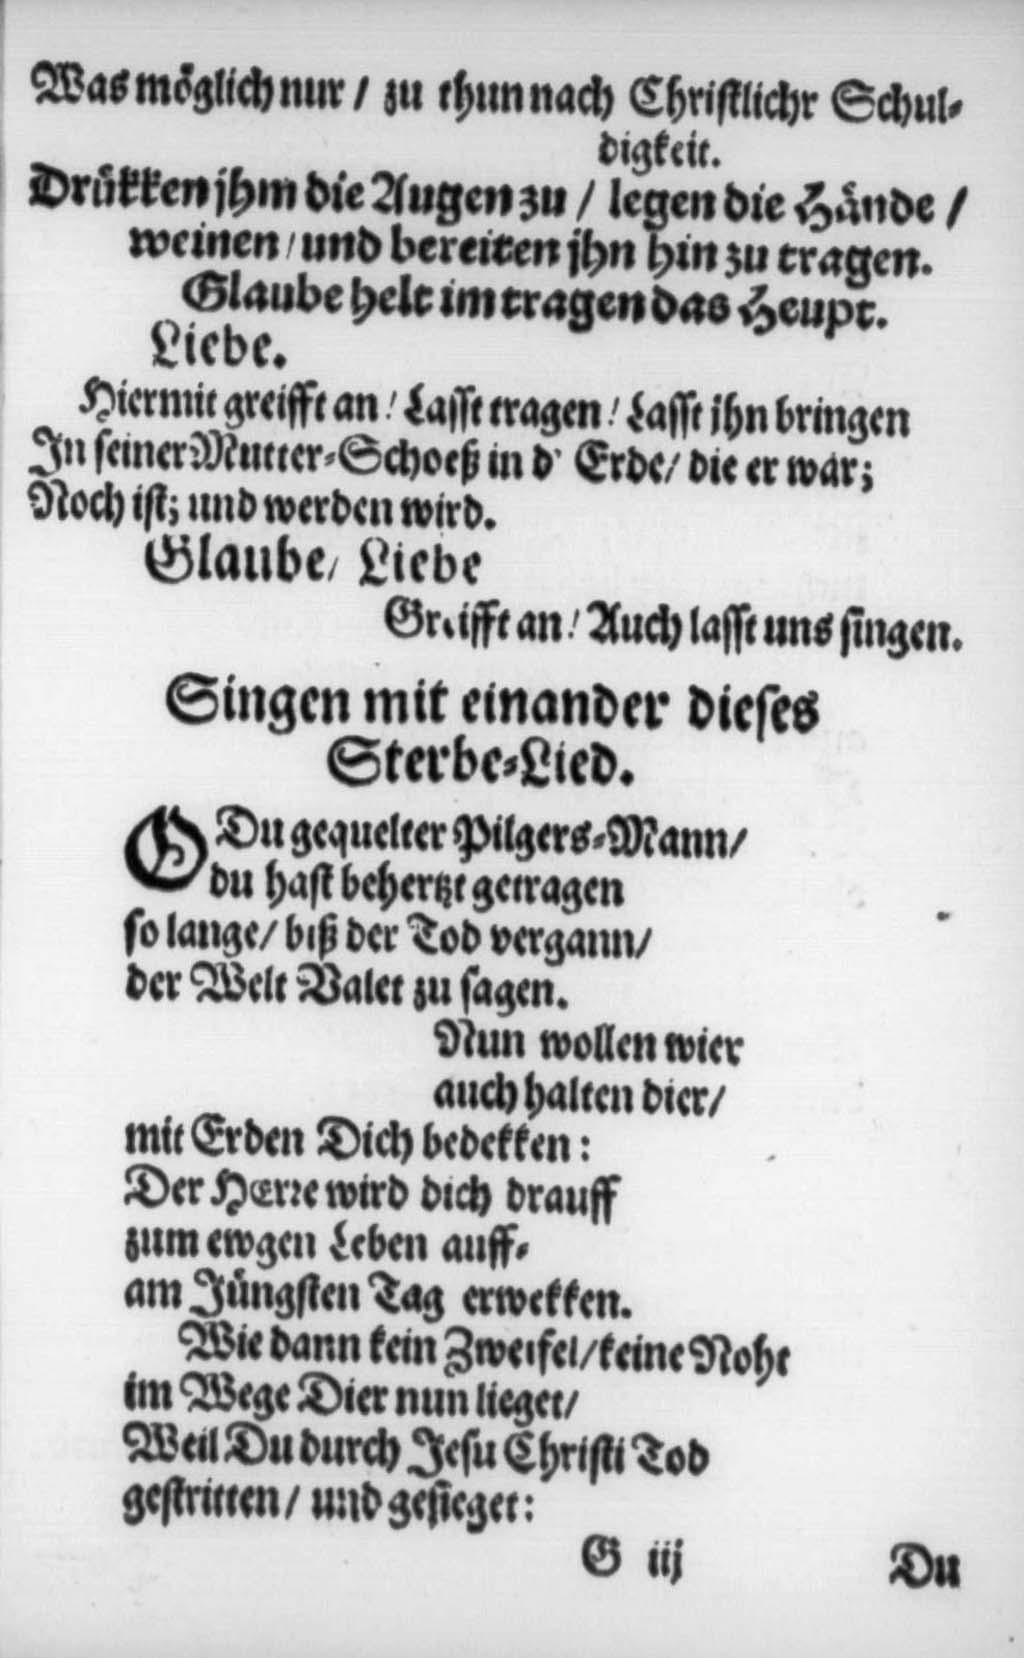 Was möglich nur / zu thun nach Christlichr Schul-
digkeit.
Drükken jhm die Augen zu / legen die Hände /
weinen / und bereiten jhn hin zu tragen.
Glaube helt im tragen das Heupt.
Liebe.
Hiermit greifft an! Lasst tragen! Lasst jhn bringen
In seiner Mutter-Schoeß in d' Erde / die er war;
Noch ist; und werden wird.
Glaube / Liebe
Greifft an! Auch lasst uns singen.
Singen mit einander dieses
Sterbe-Lied.
O Du gequelter Pilgers-Mann /
du hast behertzt getragen
so lange / biß der Tod vergann /
der Welt Valet zu sagen.
Nun wollen wier
auch halten dier /
mit Erden Dich bedekken:
Der HErre wird dich drauff
zum ewgen Leben auff-
am Jüngsten Tag erwekken.
Wie dann kein Zweifel / keine Noht
im Wege Dier nun lieget /
Weil Du durch Jesu Christi Tod
gestritten / und gesieget:
G iij Du